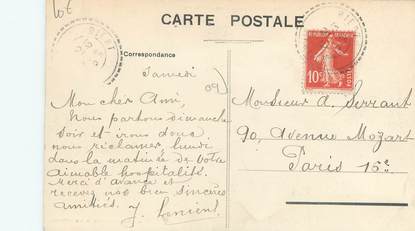 Lot
CARTE POSTALE
Correspondance
RÉPUBLIQUE FRANÇAISE
10c
POSTES
Samedi
09
Mon cher Ami,
Nous partons dimanche
soir et irons donc
nous réclamer, lundi
dans la matinée de votre
aimable hospitalité.
Merci d'avance et
recevez nos bien sincères
amitiés.
Monsieur A. Serzant
90, Avenue Mozart
Paris 15e